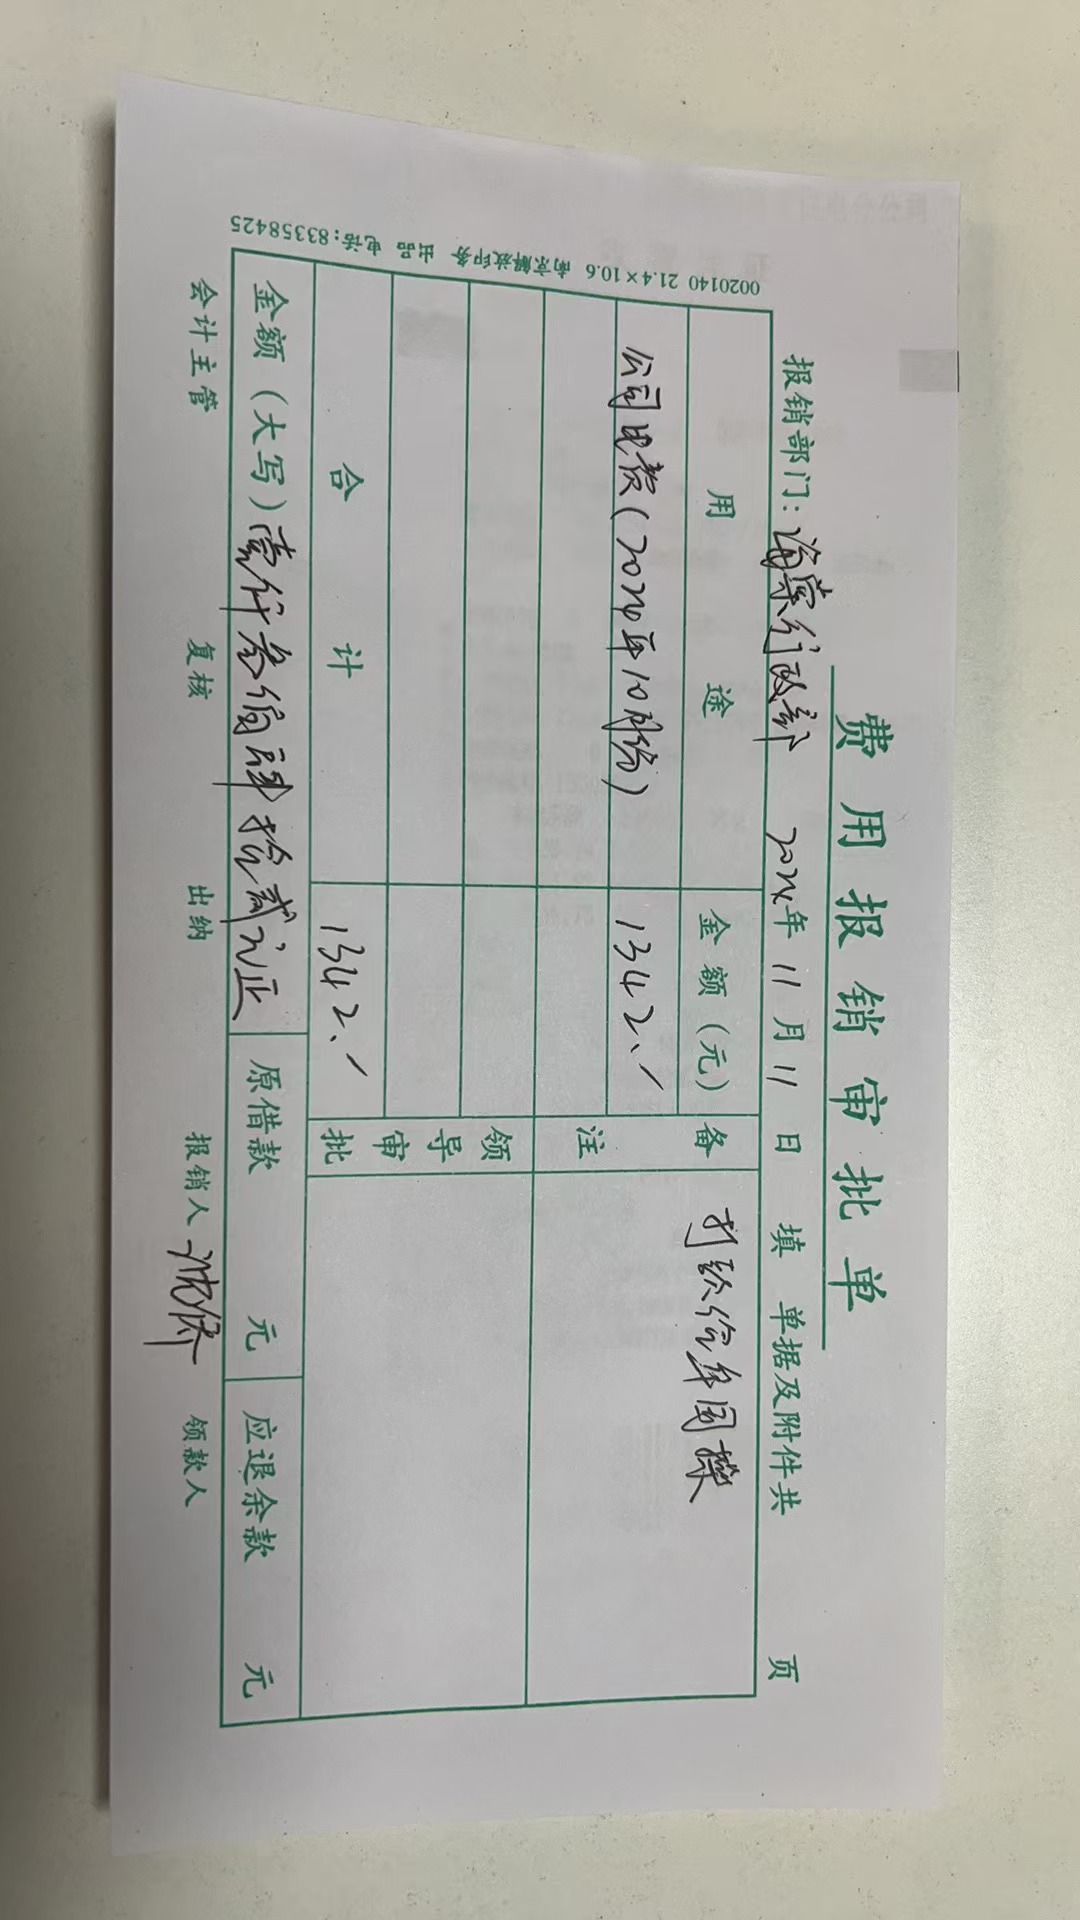 费用报销审批单
报销部门：海棠行政部 2024年 11月 11日 填 单据及附件共 页
用途 金额（元） 备注
公司电费（2024年10月份） 1342.
打款给年国
领导审批
合计 1342.
金额（大写）壹仟叁佰肆拾贰元正 原借款 元 应退余款 元
会计主管 复核 出纳 报销人 领款人
0020140 21.4×10.6 南京解放印务 出品 电话：83358425